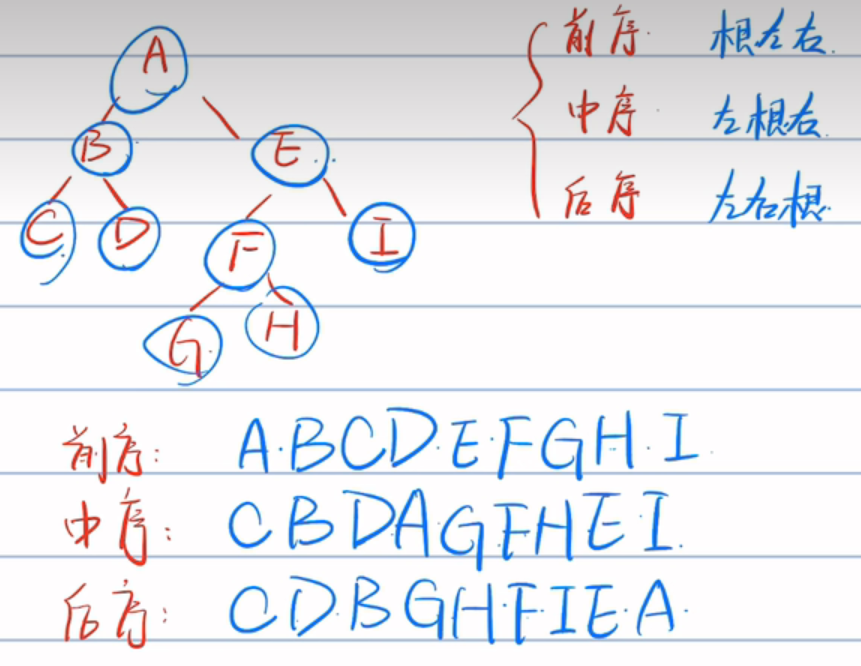 A
B
E
C
D
F
I
G
H
前序 根左右
中序 左根右
后序 左右根
前序: A·BCD·E·FGH·I
中序: CBDAGFHEI
后序: CDBGHFIEA